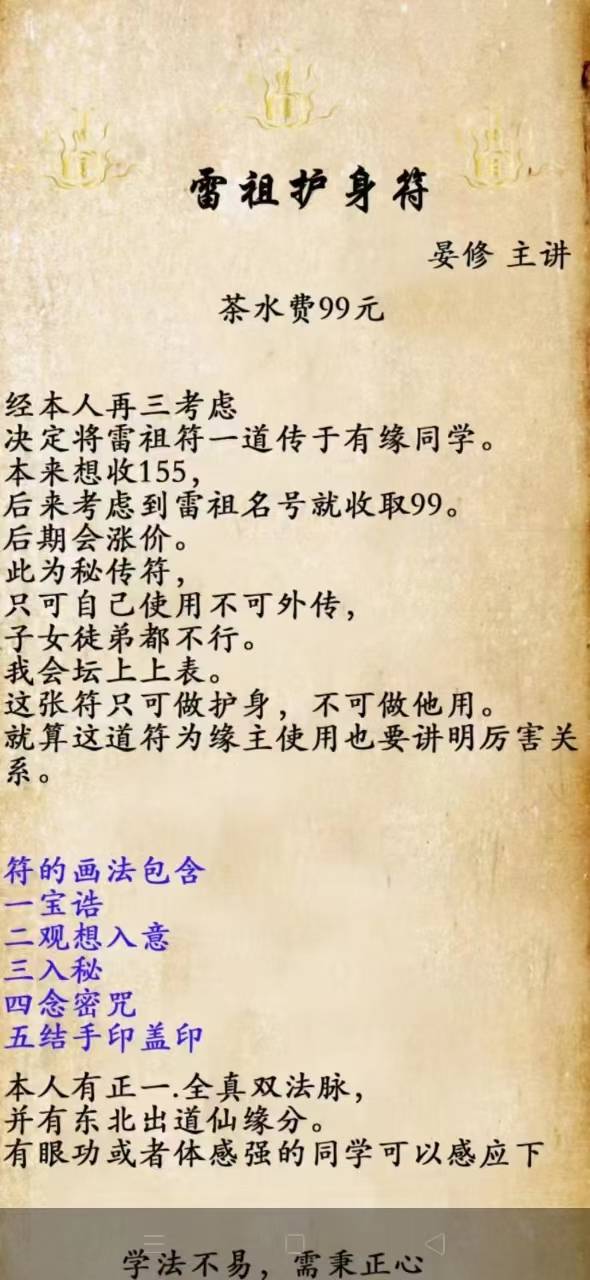 雷祖护身符
晏修 主讲
茶水费99元
经本人再三考虑
决定将雷祖符一道传于有缘同学。
本来想收155,
后来考虑到雷祖名号就收取99。
后期会涨价。
此为秘传符，
只可自己使用不可外传，
子女徒弟都不行。
我会坛上上表。
这张符只可做护身，不可做他用。
就算这道符为缘主使用也要讲明厉害关
系。
符的画法包含
一宝诰
二观想入意
三入秘
四念密咒
五结手印盖印
本人有正一.全真双法脉，
并有东北出道仙缘分。
有眼功或者体感强的同学可以感应下
学法不易，需秉正心